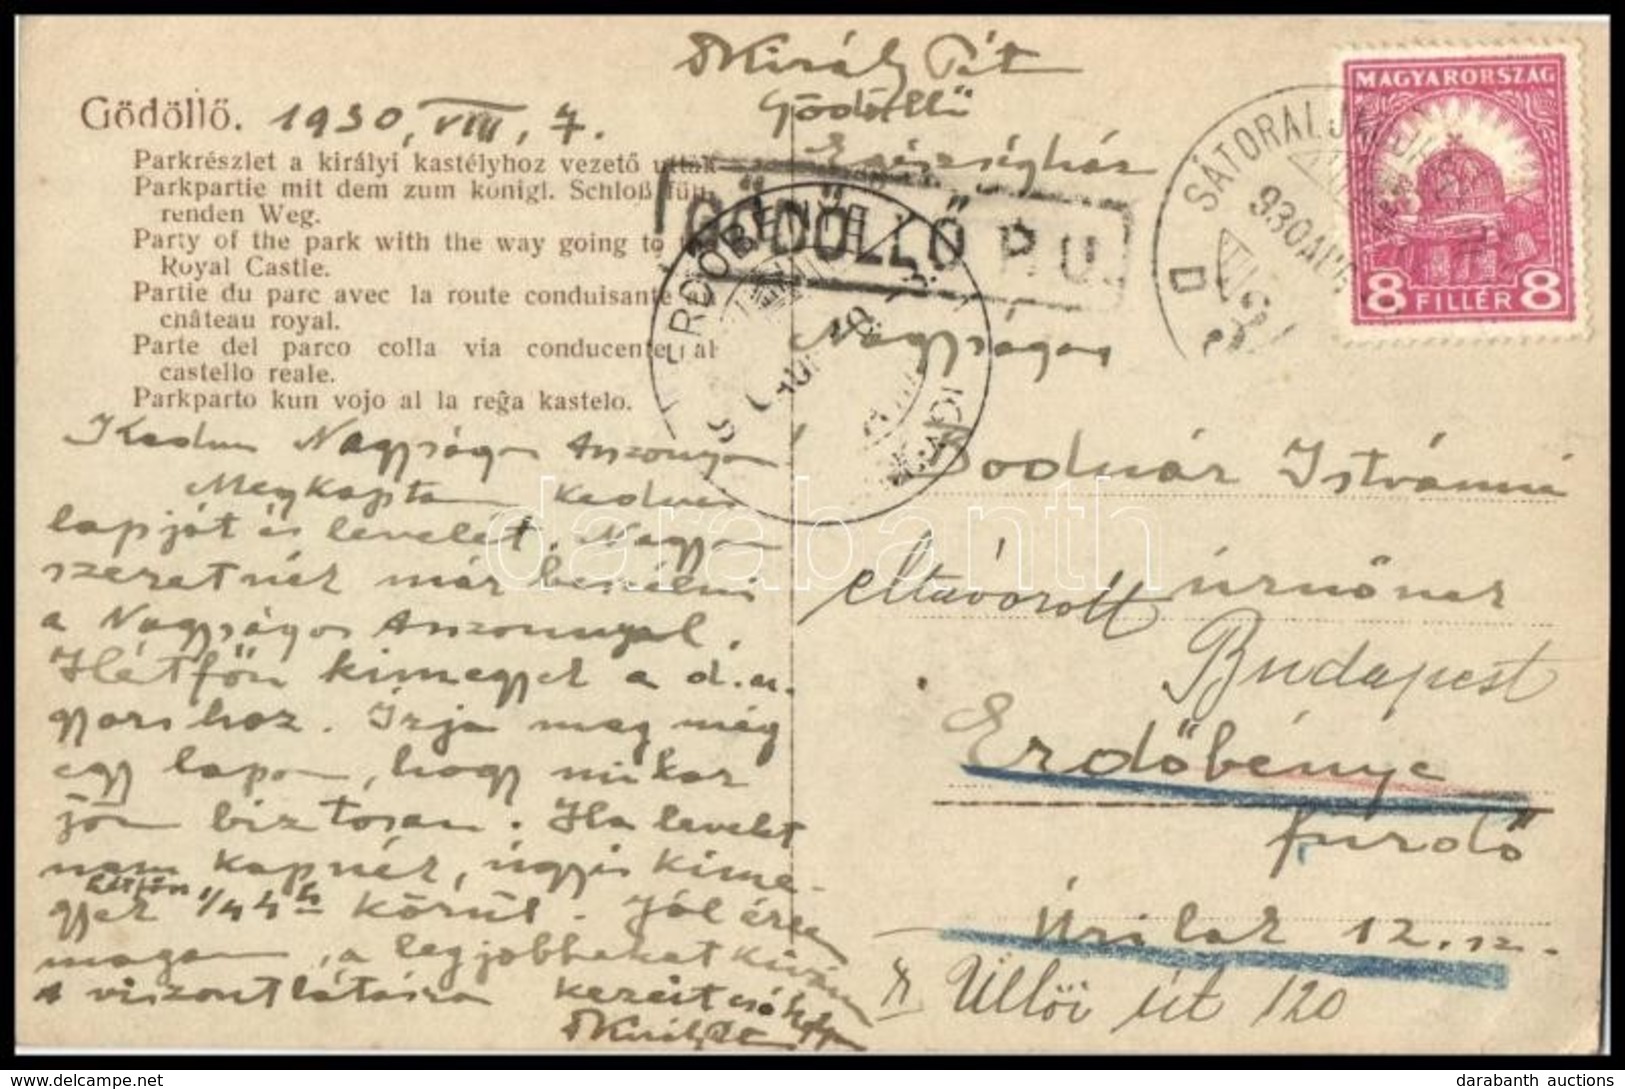 Király Pál
Gödöllő
Egészségház
Gödöllő. 1930, VIII, 7.
Parkrészlet a királyi kastélyhoz vezető úttal
Parkpartie mit dem zum königl. Schloß füh-
renden Weg.
Party of the park with the way going to the
Royal Castle.
Partie du parc avec la route conduisante au
château royal.
Parte del parco colla via conducente al
castello reale.
Parkparto kun vojo al la reĝa kastelo.
GÖDÖLLŐ P. U.
MAGYARORSZÁG
8 FILLÉR 8
SÁTORALJAÚJHELY
930 AUG
D
ERDŐBÉNYE
Kedves Nagyságos Asszonyom
Megkaptam kedves
lapját és levelét. Nagyon
szeretnék már beszélni
a Nagyságos Asszonnyal.
Hétfőn kimegyek a d.u.
gyorshoz. Írja meg még
egy lapon, hogy mikor
jön biztosan. Ha levelet
nem kapnék, úgyis kime-
hétfőn
gyek 1/4 4 h körül. Jól érezze
magát, a legjobbakat kíván
a viszontlátásra kezeit csókolja
Nagyságos
Bodnár Istvánné
úrnőnek
eltávozott
Budapest
Erdőbénye
fürdő
Úrilak 12. sz.
Üllői út 120
darabanth
darabanth auctions